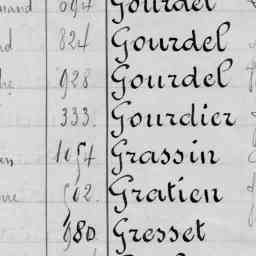 694 Gourdel
824 Gourdel
928 Gourdel
333. Gourdier
1054 Grassin
502. Gratien
980 Gresset